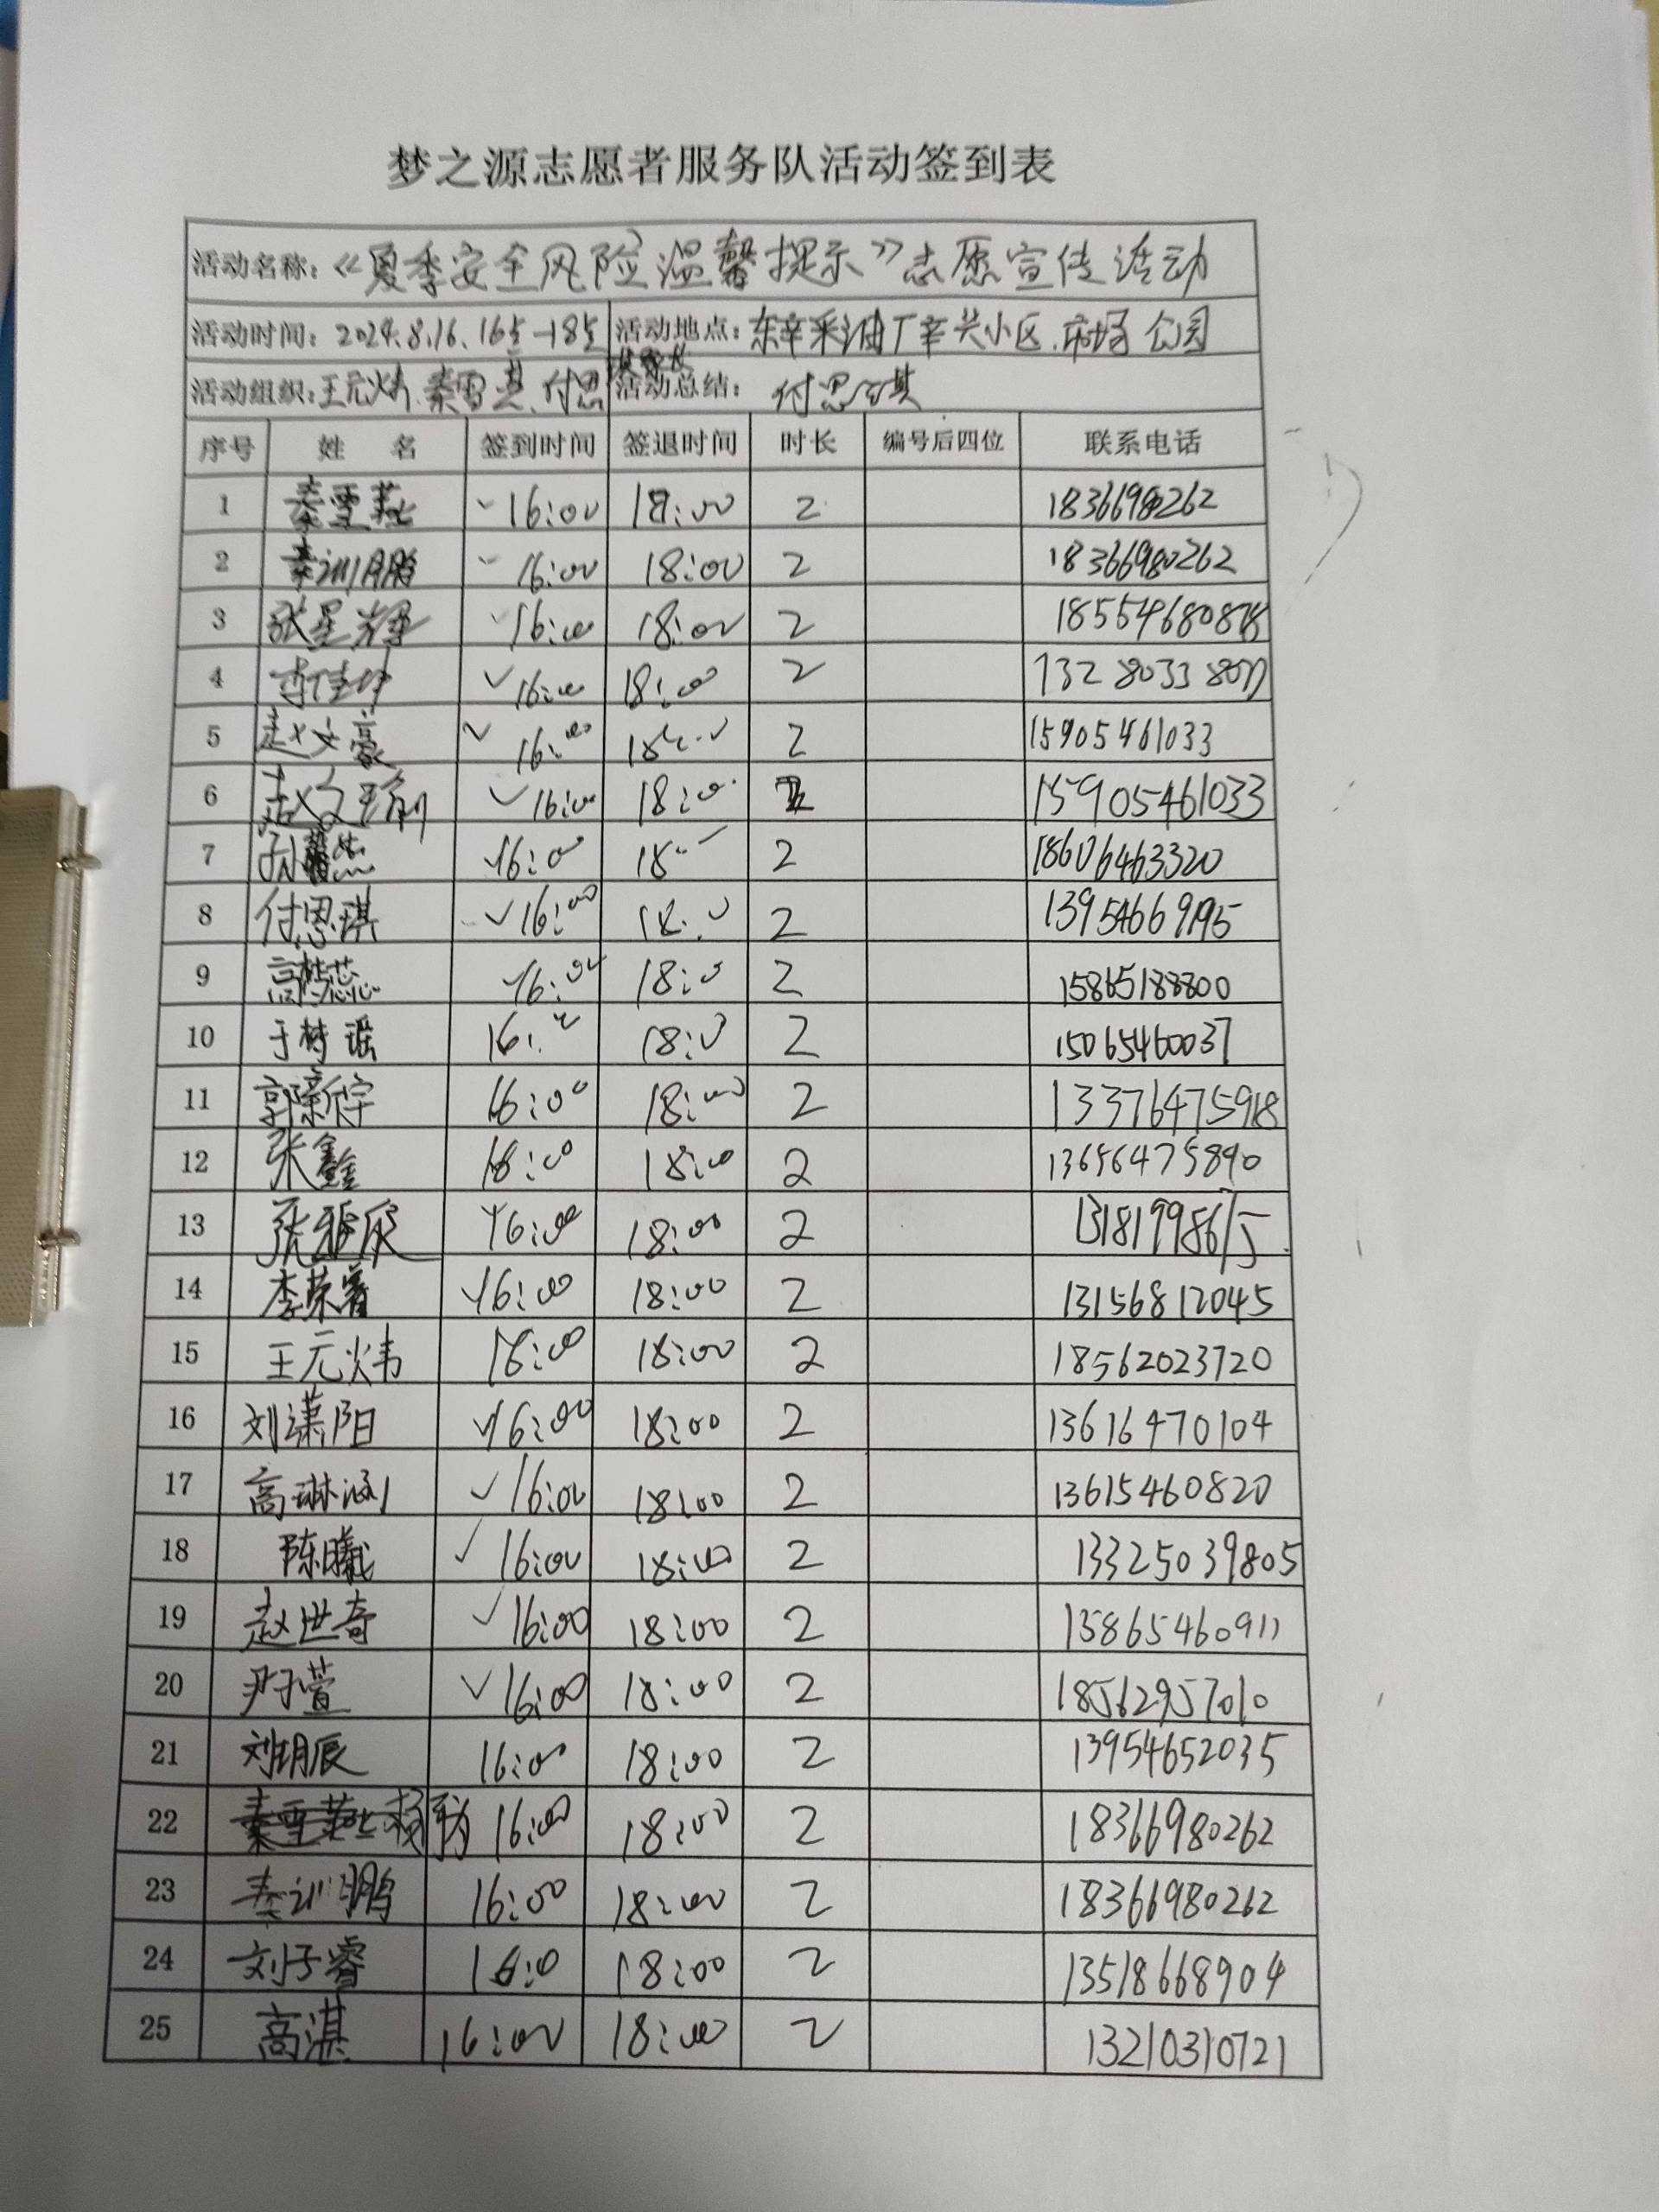 梦之源志愿者服务队活动签到表
活动名称：《夏季安全风险温馨提示》志愿宣传活动
活动时间：2024.8.16.16点-18点 活动地点：东辛采油厂辛兴小区.市场 公园
活动组织：王元炜.秦雪燕.付思 活动总结：付思琪
序号 姓 名 签到时间 签退时间 时长 编号后四位 联系电话
1 秦雪燕 16:00 18:00 2 18366980262
2 秦训鹏 16:00 18:00 2 18366980262
3 张星 16:00 18:00 2
4 16:00 18:00 2
5 赵文豪 16:00 18:00 2 15905461033
6 赵文 16:00 18:00 2 15905461033
7 孙 16:00 18:00 2 18606463320
8 付思琪 16:00 18:00 2 13954669195
9 高梦蕊 16:00 18:00 2 15865188800
10 于梦瑶 16:00 18:00 2 15065460037
11 郭新宇 16:00 18:00 2
12 张鑫 16:00 18:00 2 13656475890
13 张雅欣 16:00 18:00 2 13181998615
14 李荣睿 16:00 18:00 2 13156812045
15 王元炜 16:00 18:00 2 18562023720
16 刘潇阳 16:00 18:00 2 13616470104
17 高琳涵 16:00 18:00 2 13615460820
18 陈曦 16:00 18:00 2 13325039805
19 赵世奇 16:00 18:00 2 13865460911
20 尹子萱 16:00 18:00 2 18562957010
21 刘玥辰 16:00 18:00 2 13954652035
22 16:00 18:00 2 18366980262
23 秦训鹏 16:00 18:00 2 18366980262
24 刘子睿 16:0 18:00 2 13518668904
25 高湛 16:00 18:00 2 13210310721